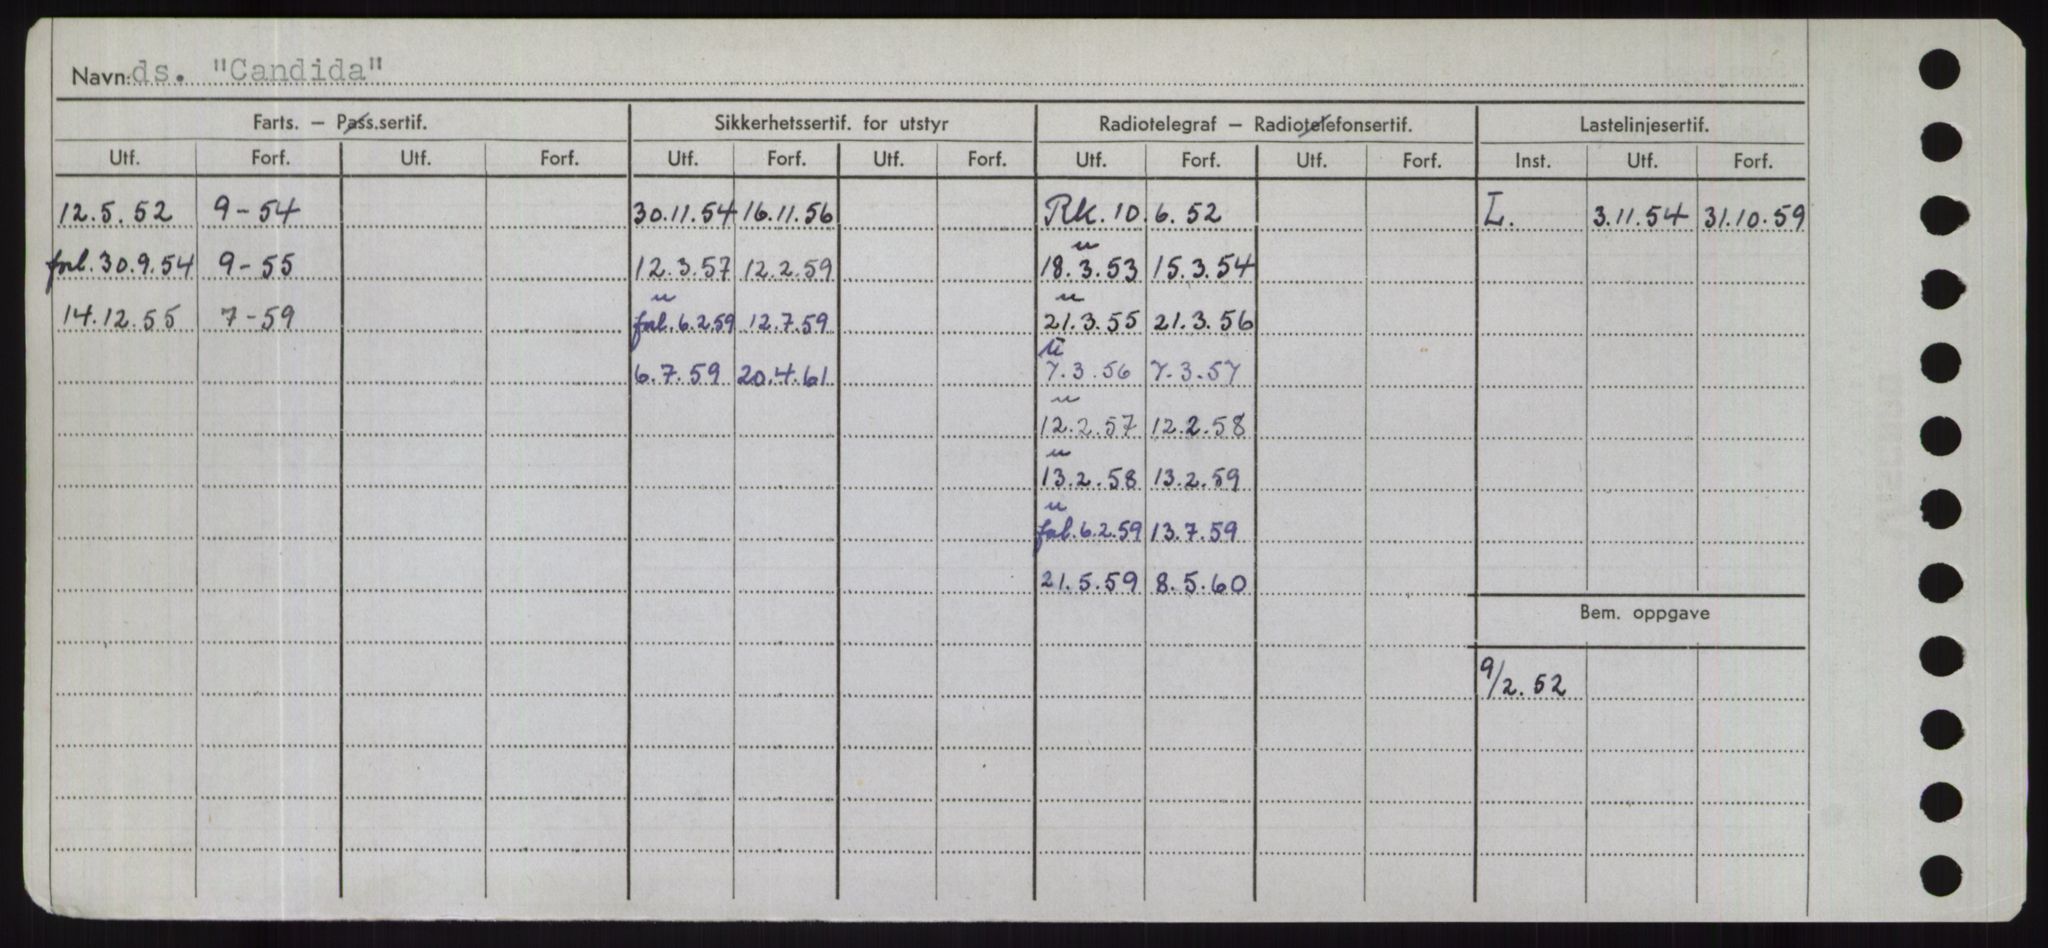 Navn: ds. "Candida"
Farts. – Pass.sertif. Sikkerhetssertif. for utstyr Radiotelegraf – Radiotelefonsertif. Lastelinjesertif.
Utf. Forf. Utf. Forf. Utf. Forf. Utf. Forf. Utf. Forf. Utf. Forf. Inst. Utf. Forf.
12.5.52 9-54 30.11.54 16.11.56 RK. 10.6.52 L. 3.11.54 31.10.59
forl. 30.9.54 9-55 12.3.57 12.2.59 u 18.3.53 15.3.54
14.12.55 7-59 u forl. 6.2.59 12.7.59 u 21.3.55 21.3.56
6.7.59 20.4.61 u 7.3.56 7.3.57
u 12.2.57 12.2.58
u 13.2.58 13.2.59
u forl. 6.2.59 13.7.59
21.5.59 8.5.60
Bem. oppgave
9/2.52